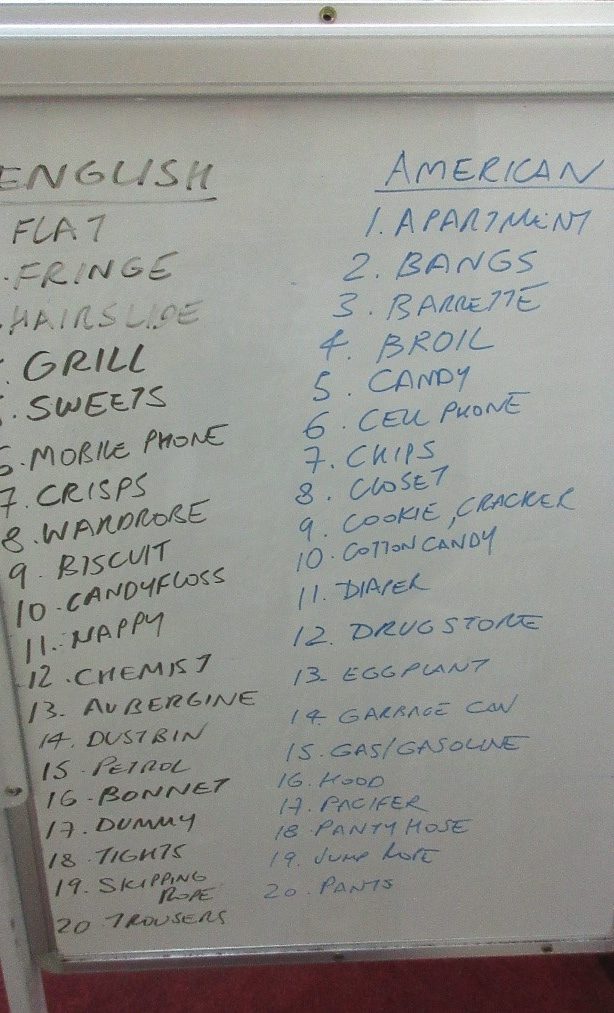 ENGLISH
FLAT
.FRINGE
.HAIRSLIDE
. GRILL
. SWEETS
6. MOBILE PHONE
7. CRISPS
8. WARDROBE
9. BISCUIT
10. CANDYFLOSS
11. NAPPY
12. CHEMIST
13. AUBERGINE
14. DUSTBIN
15. PETROL
16. BONNET
17. DUMMY
18. TIGHTS
19. SKIPPING
ROPE
20 TROUSERS
AMERICAN
1. APARTMENT
2. BANGS
3. BARRETTE
4. BROIL
5. CANDY
6. CELL PHONE
7. CHIPS
8. CLOSET
9. COOKIE, CRACKER
10. COTTON CANDY
11. DIAPER
12. DRUGSTORE
13. EGGPLANT
14. GARBAGE CAN
15. GAS/GASOLINE
16. HOOD
17. PACIFER
18. PANTYHOSE
19. JUMP ROPE
20. PANTS